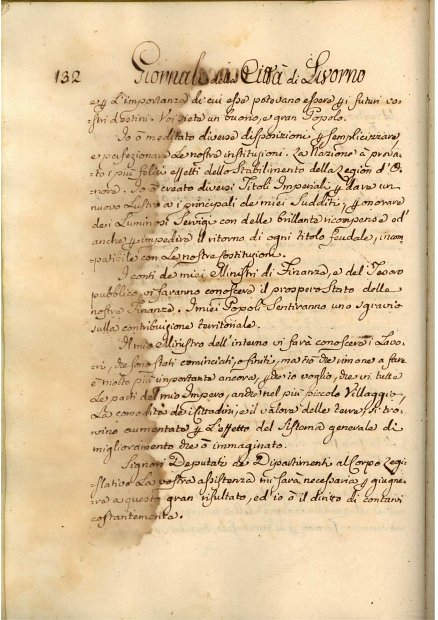 132 Giornale della Città di Livorno
e ꝑ L'importanza di cui esse potevano essere ꝑ i futuri vo-
stri destini. Voi siete un buono, e gran Popolo.
Io ò meditato diverse disposizioni ꝑ semplicizzare,
e perfezionare Le nostre instituzioni. La Nazione à prova-
to i più felici effetti dello Stabilimento della Legion d'O-
nore. Io ò creato diversi Titoli Imperiali ꝑ dare un
nuovo Lustro a i principali de miei Sudditi, ꝑ onorare
dei Luminosi Servigi con delle brillante ricompense ed
anche ꝑ impedire il ritorno di ogni titolo feudale, incom-
patibile con Le nostre Costituzioni.
I conti de miei Ministri di Finanze, e del Tesoro
pubblico, vi faranno conoscere il prospero Stato delle
nostre Finanze. I miei Popoli Sentiranno uno sgravio
sulla contribuzione territoriale.
Il mio Ministro dell'interno vi farà conoscere i Lavo-
ri, che sono stati cominciati, o finiti, ma ciò che rimane a fare
è molto più importante ancora, ꝑche io voglio, che in tutte
Le parti del mio Impero, anche nel più piccolo Villaggio,
La comodità de i Cittadini, e il valore delle terre, si tro-
vino aumentate ꝑ L'effetto del Sistema generale di
miglioramento che ò immaginato.
Signori Deputati de Dipartimenti al Corpo Legi-
slativo La vostra assistenza mi sarà necessaria ꝑ giugne-
re a questo gran risultato, ed io ò il diritto di contarvi
costantemente.